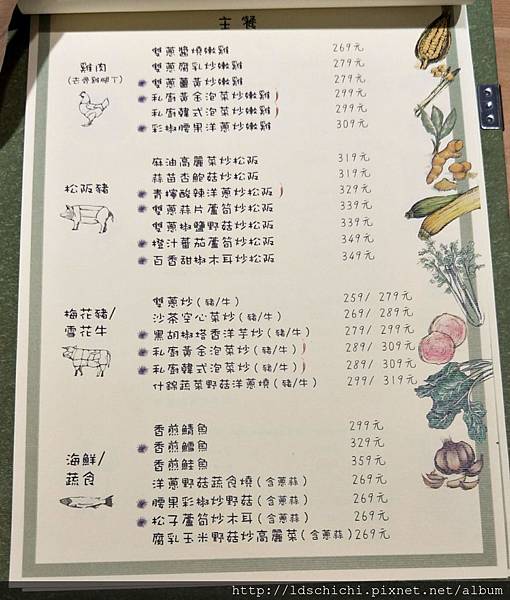 主餐
雞肉
(去骨雞腿丁)
雙蔥醬燒嫩雞 269元
雙蔥腐乳炒嫩雞 279元
雙蔥薑黃炒嫩雞 279元
私廚黃金泡菜炒嫩雞 299元
私廚韓式泡菜炒嫩雞 299元
彩椒腰果洋蔥炒嫩雞 309元
松阪豬
麻油高麗菜炒松阪 319元
蒜苗杏鮑菇炒松阪 319元
青檸酸辣洋蔥炒松阪 329元
雙蔥蒜片蘆筍炒松阪 339元
雙蔥椒鹽野菇炒松阪 339元
橙汁蕃茄蘆筍炒松阪 349元
百香甜椒木耳炒松阪 349元
梅花豬/
雪花牛
雙蔥炒(豬/牛) 259/ 279元
沙茶空心菜炒(豬/牛) 269/ 289元
黑胡椒塔香洋芋炒(豬/牛) 279/ 299元
私廚黃金泡菜炒(豬/牛) 289/ 309元
私廚韓式泡菜炒(豬/牛) 289/ 309元
什錦蔬菜野菇洋蔥燒(豬/牛) 299/ 319元
海鮮/
蔬食
香煎鯖魚 299元
香煎鱈魚 329元
香煎鮭魚 359元
洋蔥野菇蔬食燒(含蔥蒜) 269元
腰果彩椒炒野菇(含蔥蒜) 269元
松子蘆筍炒木耳(含蔥蒜) 269元
腐乳玉米野菇炒高麗菜(含蔥蒜)269元
http://ldschichi.pixnet.net/album